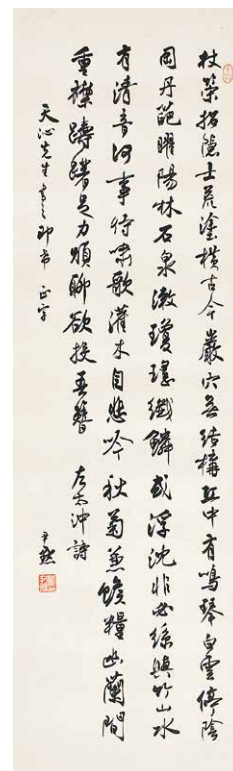 杖策招隱士荒塗橫古今巖穴無結構丘中有鳴琴白雲停陰
岡丹葩曜陽林石泉漱瓊瑤纖鱗或浮沈非必絲與竹山水
有清音何事待嘯歌灌木自悲吟秋菊兼餱糧幽蘭間
重襟躊躇足力煩聊欲投吾簪 左太沖詩
天沁先生 即希 正字 尹默